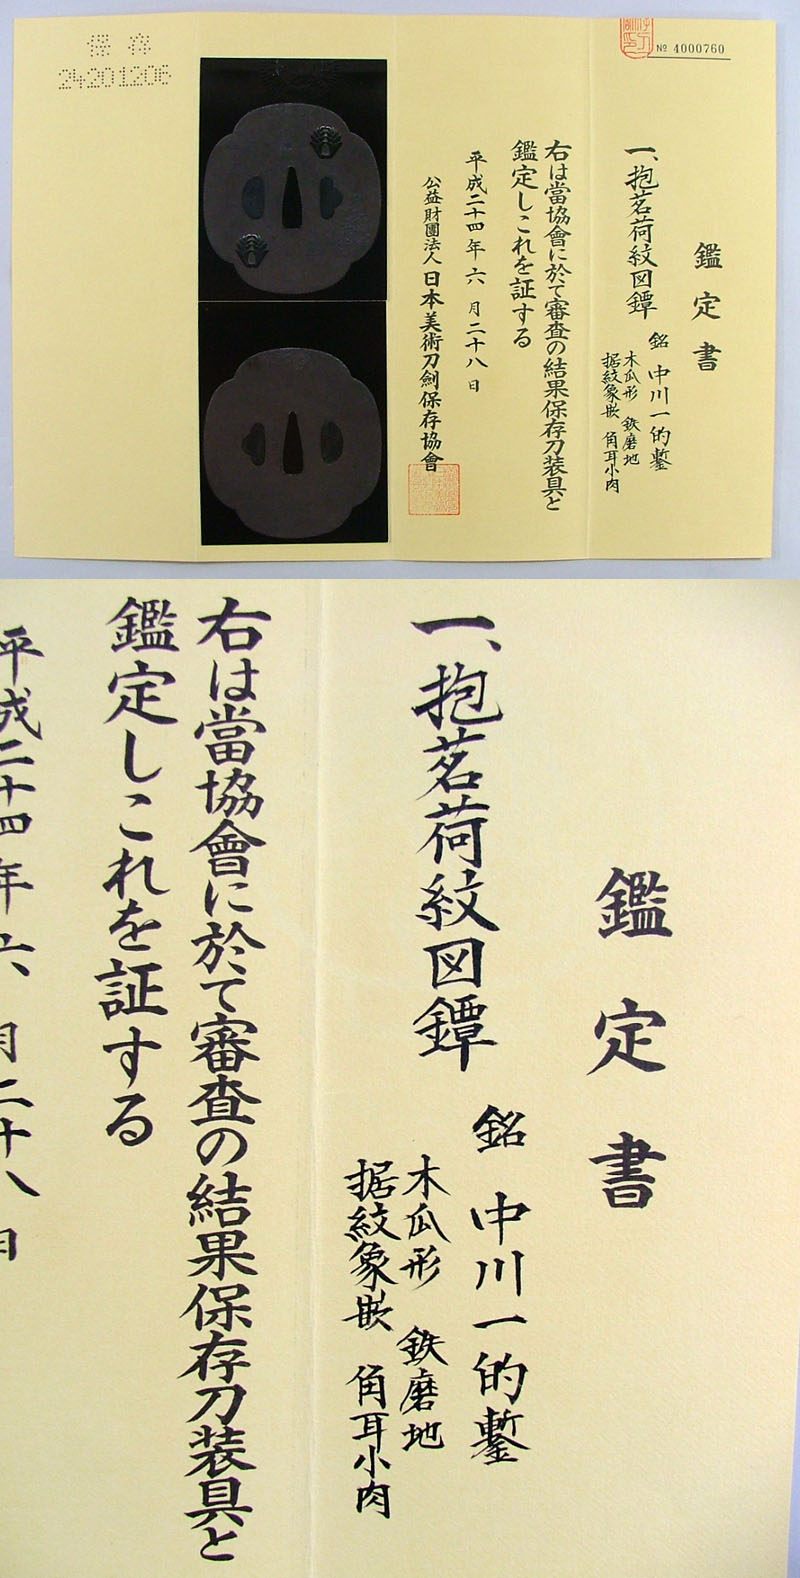 保存
24201206
№ 4000760
鑑定書
一、抱茗荷紋図鐔
銘 中川一的鏨
木瓜形 鉄磨地
据紋象嵌 角耳小肉
右は當協會に於て審査の結果保存刀装具と
鑑定しこれを証する
平成二十四年六月二十八日
公益財團法人日本美術刀劍保存協會
鑑定書
一、抱茗荷紋図鐔
銘 中川一的鏨
木瓜形 鉄磨地
据紋象嵌 角耳小肉
右は當協會に於て審査の結果保存刀装具と
鑑定しこれを証する
平成二十四年六月二十八日